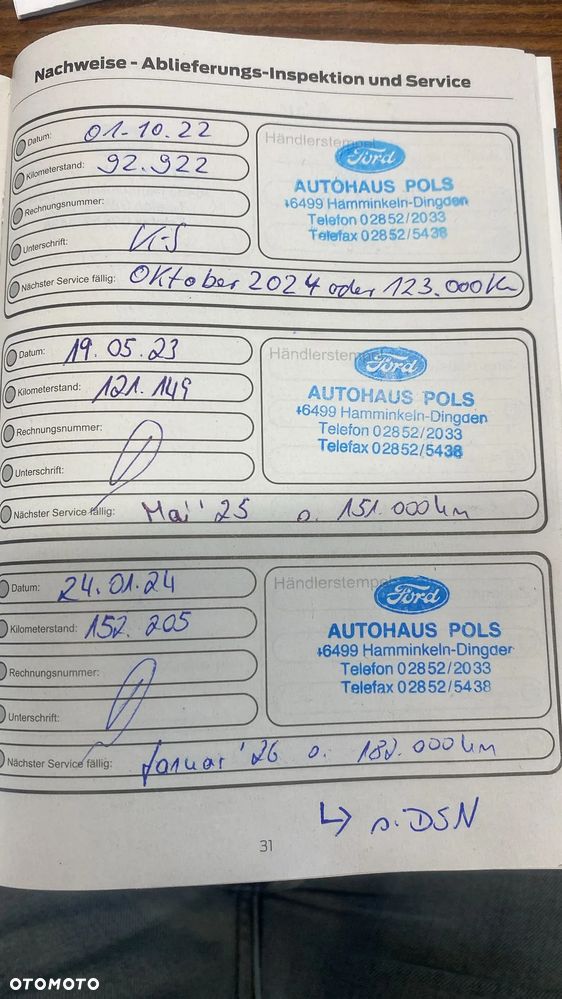 Nachweise - Ablieferungs-Inspektion und Service
Datum: 01-10.22
Kilometerstand: 92.922
Rechnungsnummer:
Unterschrift:
Nächster Service fällig: Oktober 2024 oder 123.000 Km
Händlerstempel
Ford
AUTOHAUS POLS
46499 Hamminkeln-Dingden
Telefon 02852/2033
Telefax 02852/5438
Datum: 19.05.23
Kilometerstand: 121.149
Rechnungsnummer:
Unterschrift:
Nächster Service fällig: Mai '25 o. 151.000 km
Händlerstempel
Ford
AUTOHAUS POLS
46499 Hamminkeln-Dingden
Telefon 02852/2033
Telefax 02852/5438
Datum: 24.01.24
Kilometerstand: 152.205
Rechnungsnummer:
Unterschrift:
Nächster Service fällig: Januar '26 o. 182.000 km
Händlerstempel
Ford
AUTOHAUS POLS
46499 Hamminkeln-Dingden
Telefon 02852/2033
Telefax 02852/5438
↳ s. DSN
31
OTOMOTO